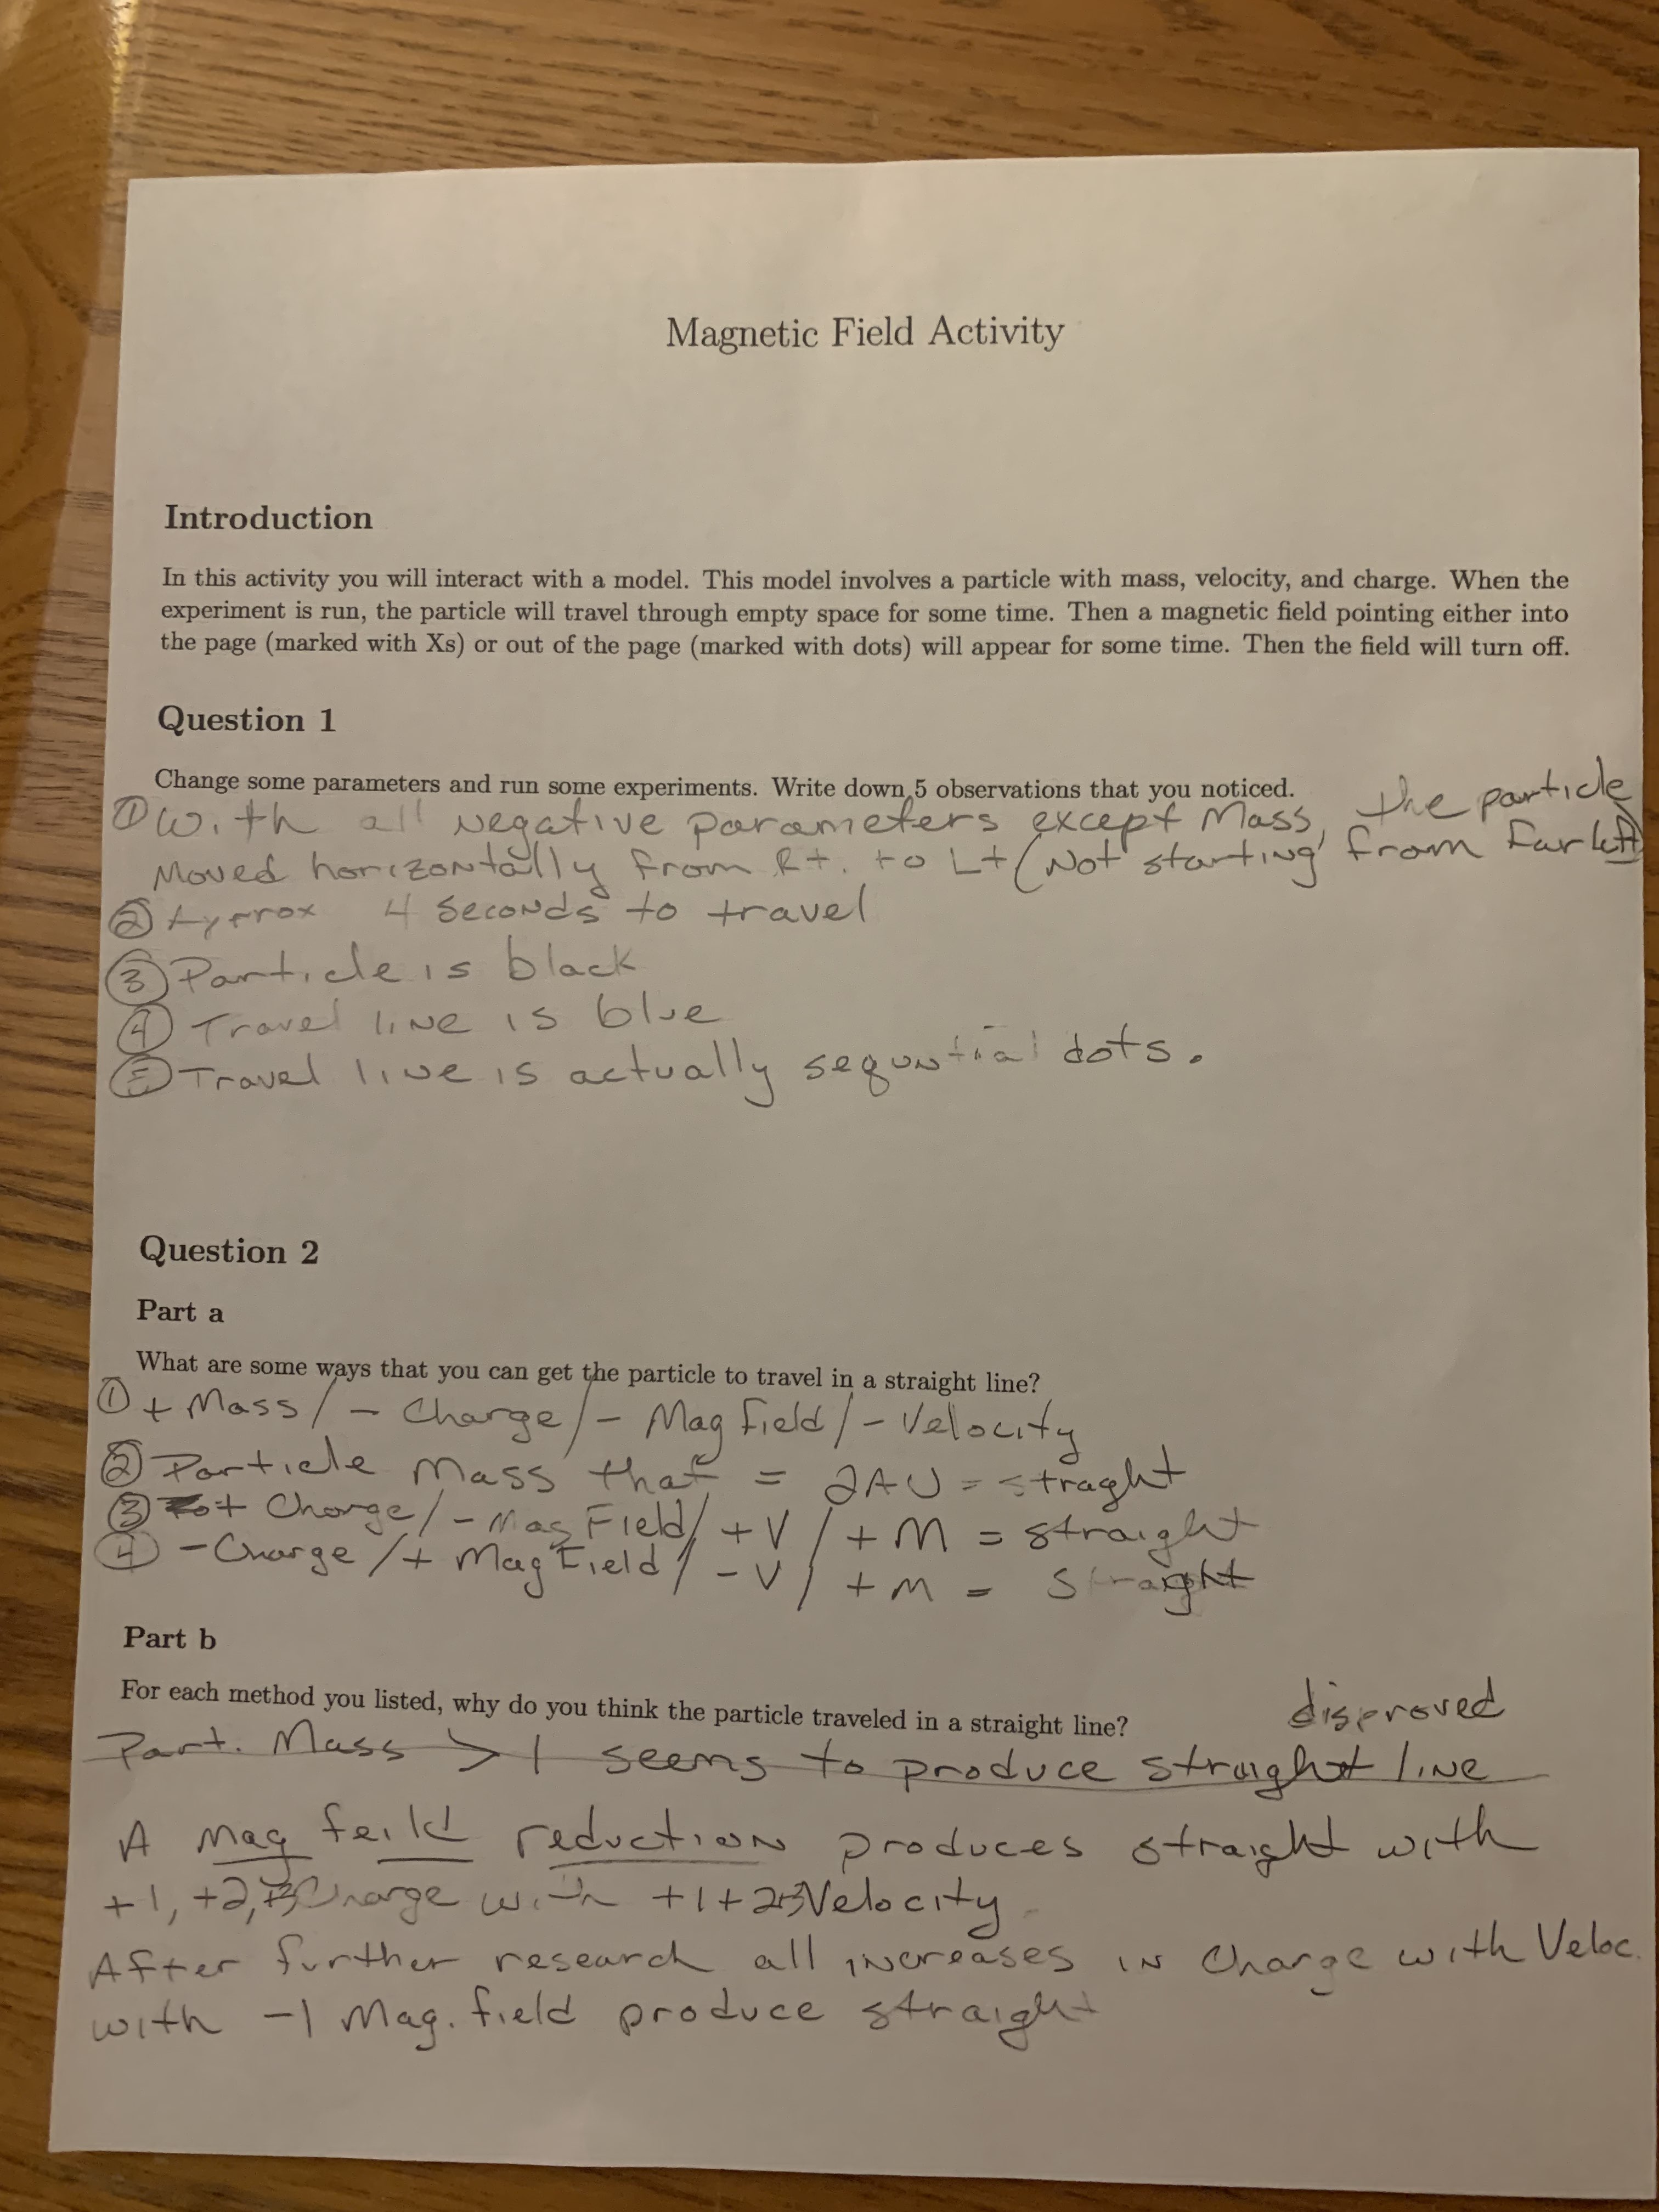 Magnetic Field Activity
Introduction
In this activity you will interact with a model. This model involves a particle with mass, velocity, and charge. When the
experiment is run, the particle will travel through empty space for some time. Then a magnetic field pointing either into
the page (marked with Xs) or out of the page (marked with dots) will appear for some time. Then the field will turn off.
Question 1
Change some parameters and run some experiments. Write down 5 observations that you noticed.
① With all negative parameters except Mass, the particle
Moved horizontally from Rt. to Lt (Not starting from far left)
② 4 seconds to travel
③ Particle is black
④ Travel line is blue
⑤ Travel line is actually sequntial dots.
Question 2
Part a
What are some ways that you can get the particle to travel in a straight line?
① + Mass / - Charge / - Mag field / - Velocity
② Particle Mass that = 2AU = straght
③ + Charge / - Mag Field / + V / + M = straight
④ - Charge / + Mag Field / - V / + M = Straight
Part b
For each method you listed, why do you think the particle traveled in a straight line?
disproved
Part. Mass > 1 seems to produce straight line
A Mag feild reduction produces straight with
+1, +2, +3 Charge with +1 +2 +3 Velocity
After further research all increases in Charge with Veloc.
with -1 Mag. field produce straight